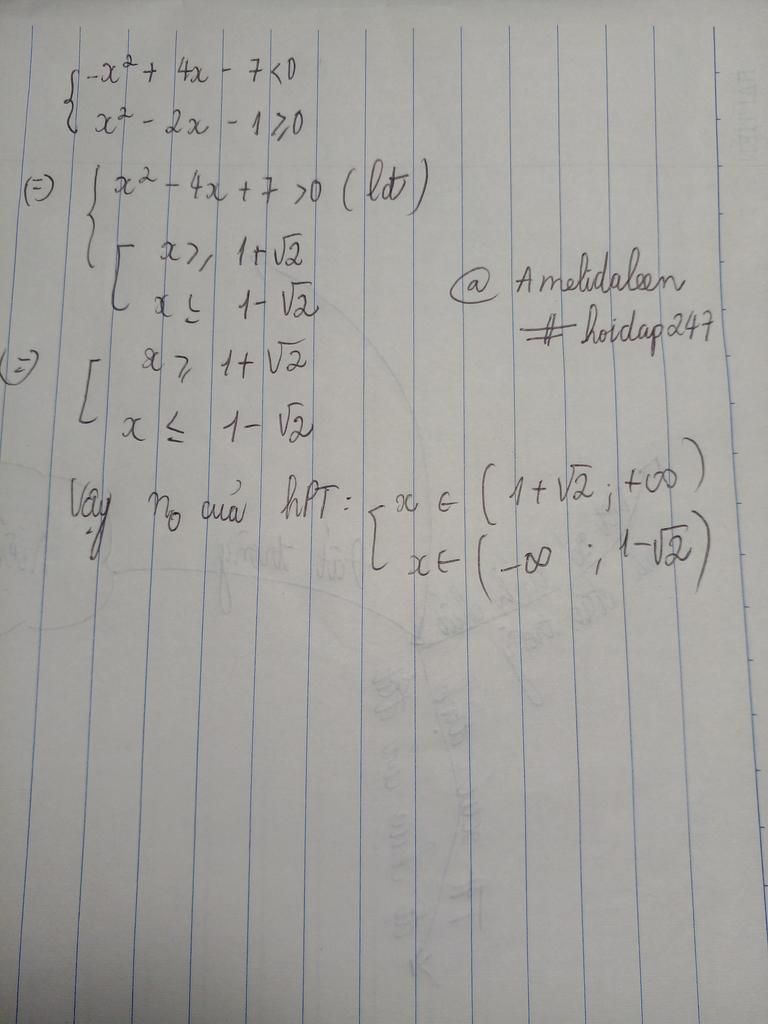 { -x² + 4x - 7 < 0
x² - 2x - 1 ≥ 0
(=) { x² - 4x + 7 > 0 (lđt)
[ x ≥ 1 + √2
x ≤ 1 - √2
@ Amelidaleen
# hoidap247
(=) [ x ≥ 1 + √2
x ≤ 1 - √2
Vậy no của hPT: [ x ∈ (1 + √2 ; +∞)
x ∈ (-∞ ; 1 - √2)